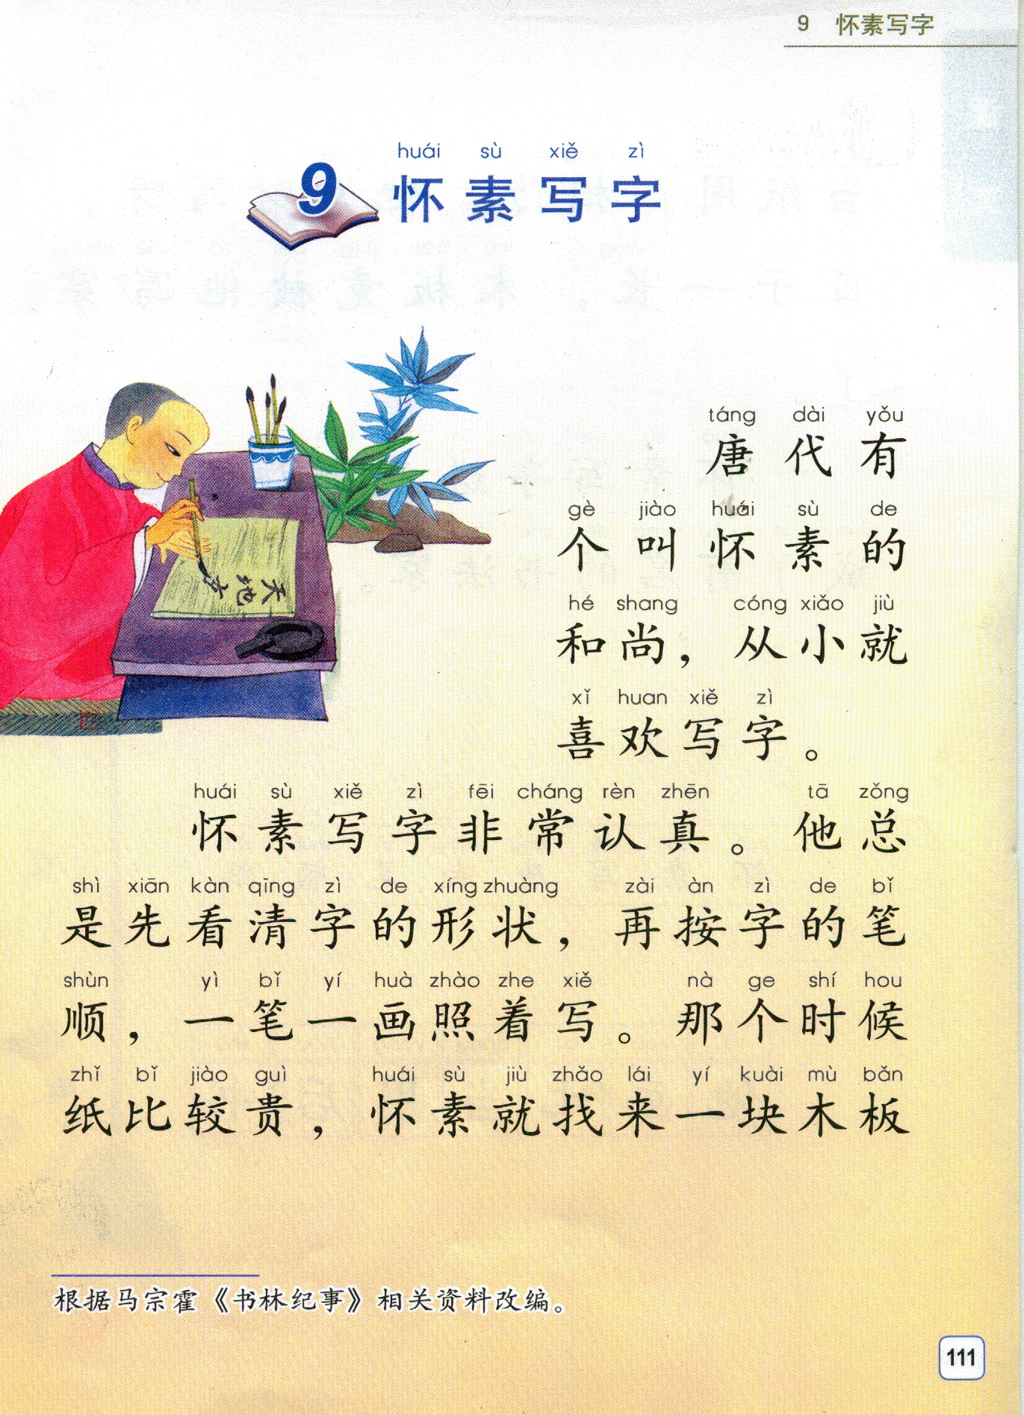 9 怀素写字
huái sù xiě zì
9 怀素写字
táng dài yǒu
唐代有
gè jiào huái sù de
个叫怀素的
hé shang cóng xiǎo jiù
和尚，从小就
xǐ huan xiě zì
喜欢写字。
huái sù xiě zì fēi cháng rèn zhēn tā zǒng
怀素写字非常认真。他总
shì xiān kàn qīng zì de xíng zhuàng zài àn zì de bǐ
是先看清字的形状，再按字的笔
shùn yì bǐ yí huà zhào zhe xiě nà ge shí hou
顺，一笔一画照着写。那个时候
zhǐ bǐ jiào guì huái sù jiù zhǎo lái yí kuài mù bǎn
纸比较贵，怀素就找来一块木板
天地玄
根据马宗霍《书林纪事》相关资料改编。
111